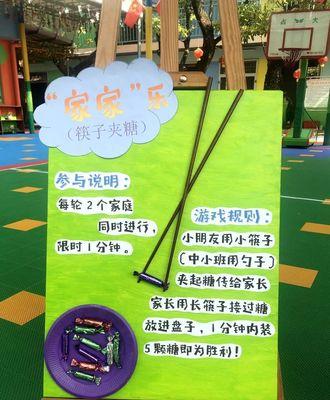 “家家”乐
（筷子夹糖）
参与说明：
每轮2个家庭
同时进行，
限时1分钟。
游戏规则：
小朋友用小筷子
（中小班用勺子）
夹起糖传给家长
家长用长筷子接过糖
放进盘子，1分钟内装
5颗糖即为胜利！